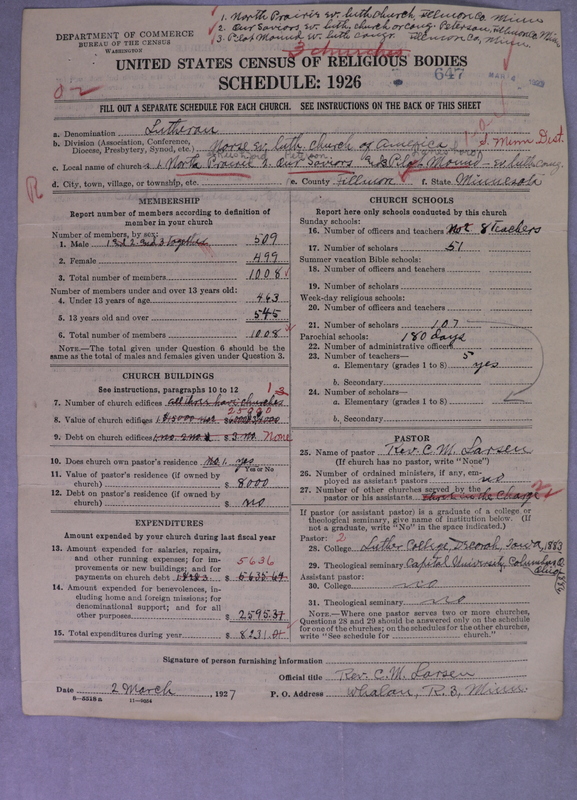 1. North Prairie Ev. Luth Church, Fillmore Co. Minn
2. Our Saviors Ev. Luth. church or cong. Peterson, Fillmore Co. Minn
3. Pilot Mound Ev. Luth cong. Fillmore Co, Minn.
3 churches
DEPARTMENT OF COMMERCE
BUREAU OF THE CENSUS
WASHINGTON
UNITED STATES CENSUS OF RELIGIOUS BODIES
647
MAR 4
SCHEDULE: 1926
FILL OUT A SEPARATE SCHEDULE FOR EACH CHURCH. SEE INSTRUCTIONS ON THE BACK OF THIS SHEET
a. Denomination Lutheran
b. Division (Association, Conference, Diocese, Presbytery, Synod, etc.) Norse Ev. Luth. Church of America S. Minn Dist.
c. Local name of church 1. North Prairie 2. Our Saviors & 3 Pilot Mound Ev Luth cong.
d. City, town, village, or township, etc. e. County Fillmore f. State Minnesota
R
MEMBERSHIP
Report number of members according to definition of member in your church
Number of members, by sex:
1. Male 1st 2. and 3 together 509
2. Female 499
3. Total number of members 1008
Number of members under and over 13 years old:
4. Under 13 years of age 463
5. 13 years old and over 545
6. Total number of members 1008
NOTE.—The total given under Question 6 should be the same as the total of males and females given under Question 3.
CHURCH BUILDINGS
See instructions, paragraphs 10 to 12
7. Number of church edifices all three have churches
8. Value of church edifices
9. Debt on church edifices $ 3 no. None
10. Does church own pastor's residence? no. 1. yes
Yes or No
11. Value of pastor's residence (if owned by church) $ 8000
12. Debt on pastor's residence (if owned by church) $ no
EXPENDITURES
Amount expended by church during last fiscal year
13. Amount expended for salaries, repairs, and other running expenses; for improvements or new buildings; and for payments on church debt 5636
14. Amount expended for benevolences, including home and foreign missions; for denominational support; and for all other purposes $ 2595.37
15. Total expenditures during year $ 8231.
CHURCH SCHOOLS
Report here only schools conducted by this church
Sunday schools:
16. Number of officers and teachers 8 teachers
17. Number of scholars 51
Summer vacation Bible schools:
18. Number of officers and teachers
19. Number of scholars
Week-day religious schools:
20. Number of officers and teachers
21. Number of scholars 107
Parochial schools: 180 days
22. Number of administrative officers
23. Number of teachers— 5
a. Elementary (grades 1 to 8) yes
b. Secondary
24. Number of scholars—
a. Elementary (grades 1 to 8)
b. Secondary
PASTOR
25. Name of pastor Rev. C. M. Larsen
(If church has no pastor, write "None")
26. Number of ordained ministers, if any, employed as assistant pastors no
27. Number of other churches served by the pastor or his assistants three in the Charge 2
If pastor (or assistant pastor) is a graduate of a college or theological seminary, give name of institution below. (If not a graduate, write "No" in the space indicated.)
Pastor: 2
28. College Luther College, Decorah, Iowa, 1883
29. Theological seminary Capital University, Columbus O.
Assistant pastor:
30. College no
31. Theological seminary no
NOTE.—Where one pastor serves two or more churches, Questions 28 and 29 should be answered only on the schedule for one of the churches; on the schedules for the other churches, write "See schedule for church."
Signature of person furnishing information
Official title Rev. C. M. Larsen
Date 2 March, 1927 P. O. Address Whalan, R. 3, Minn
8—5518 a 11—9054